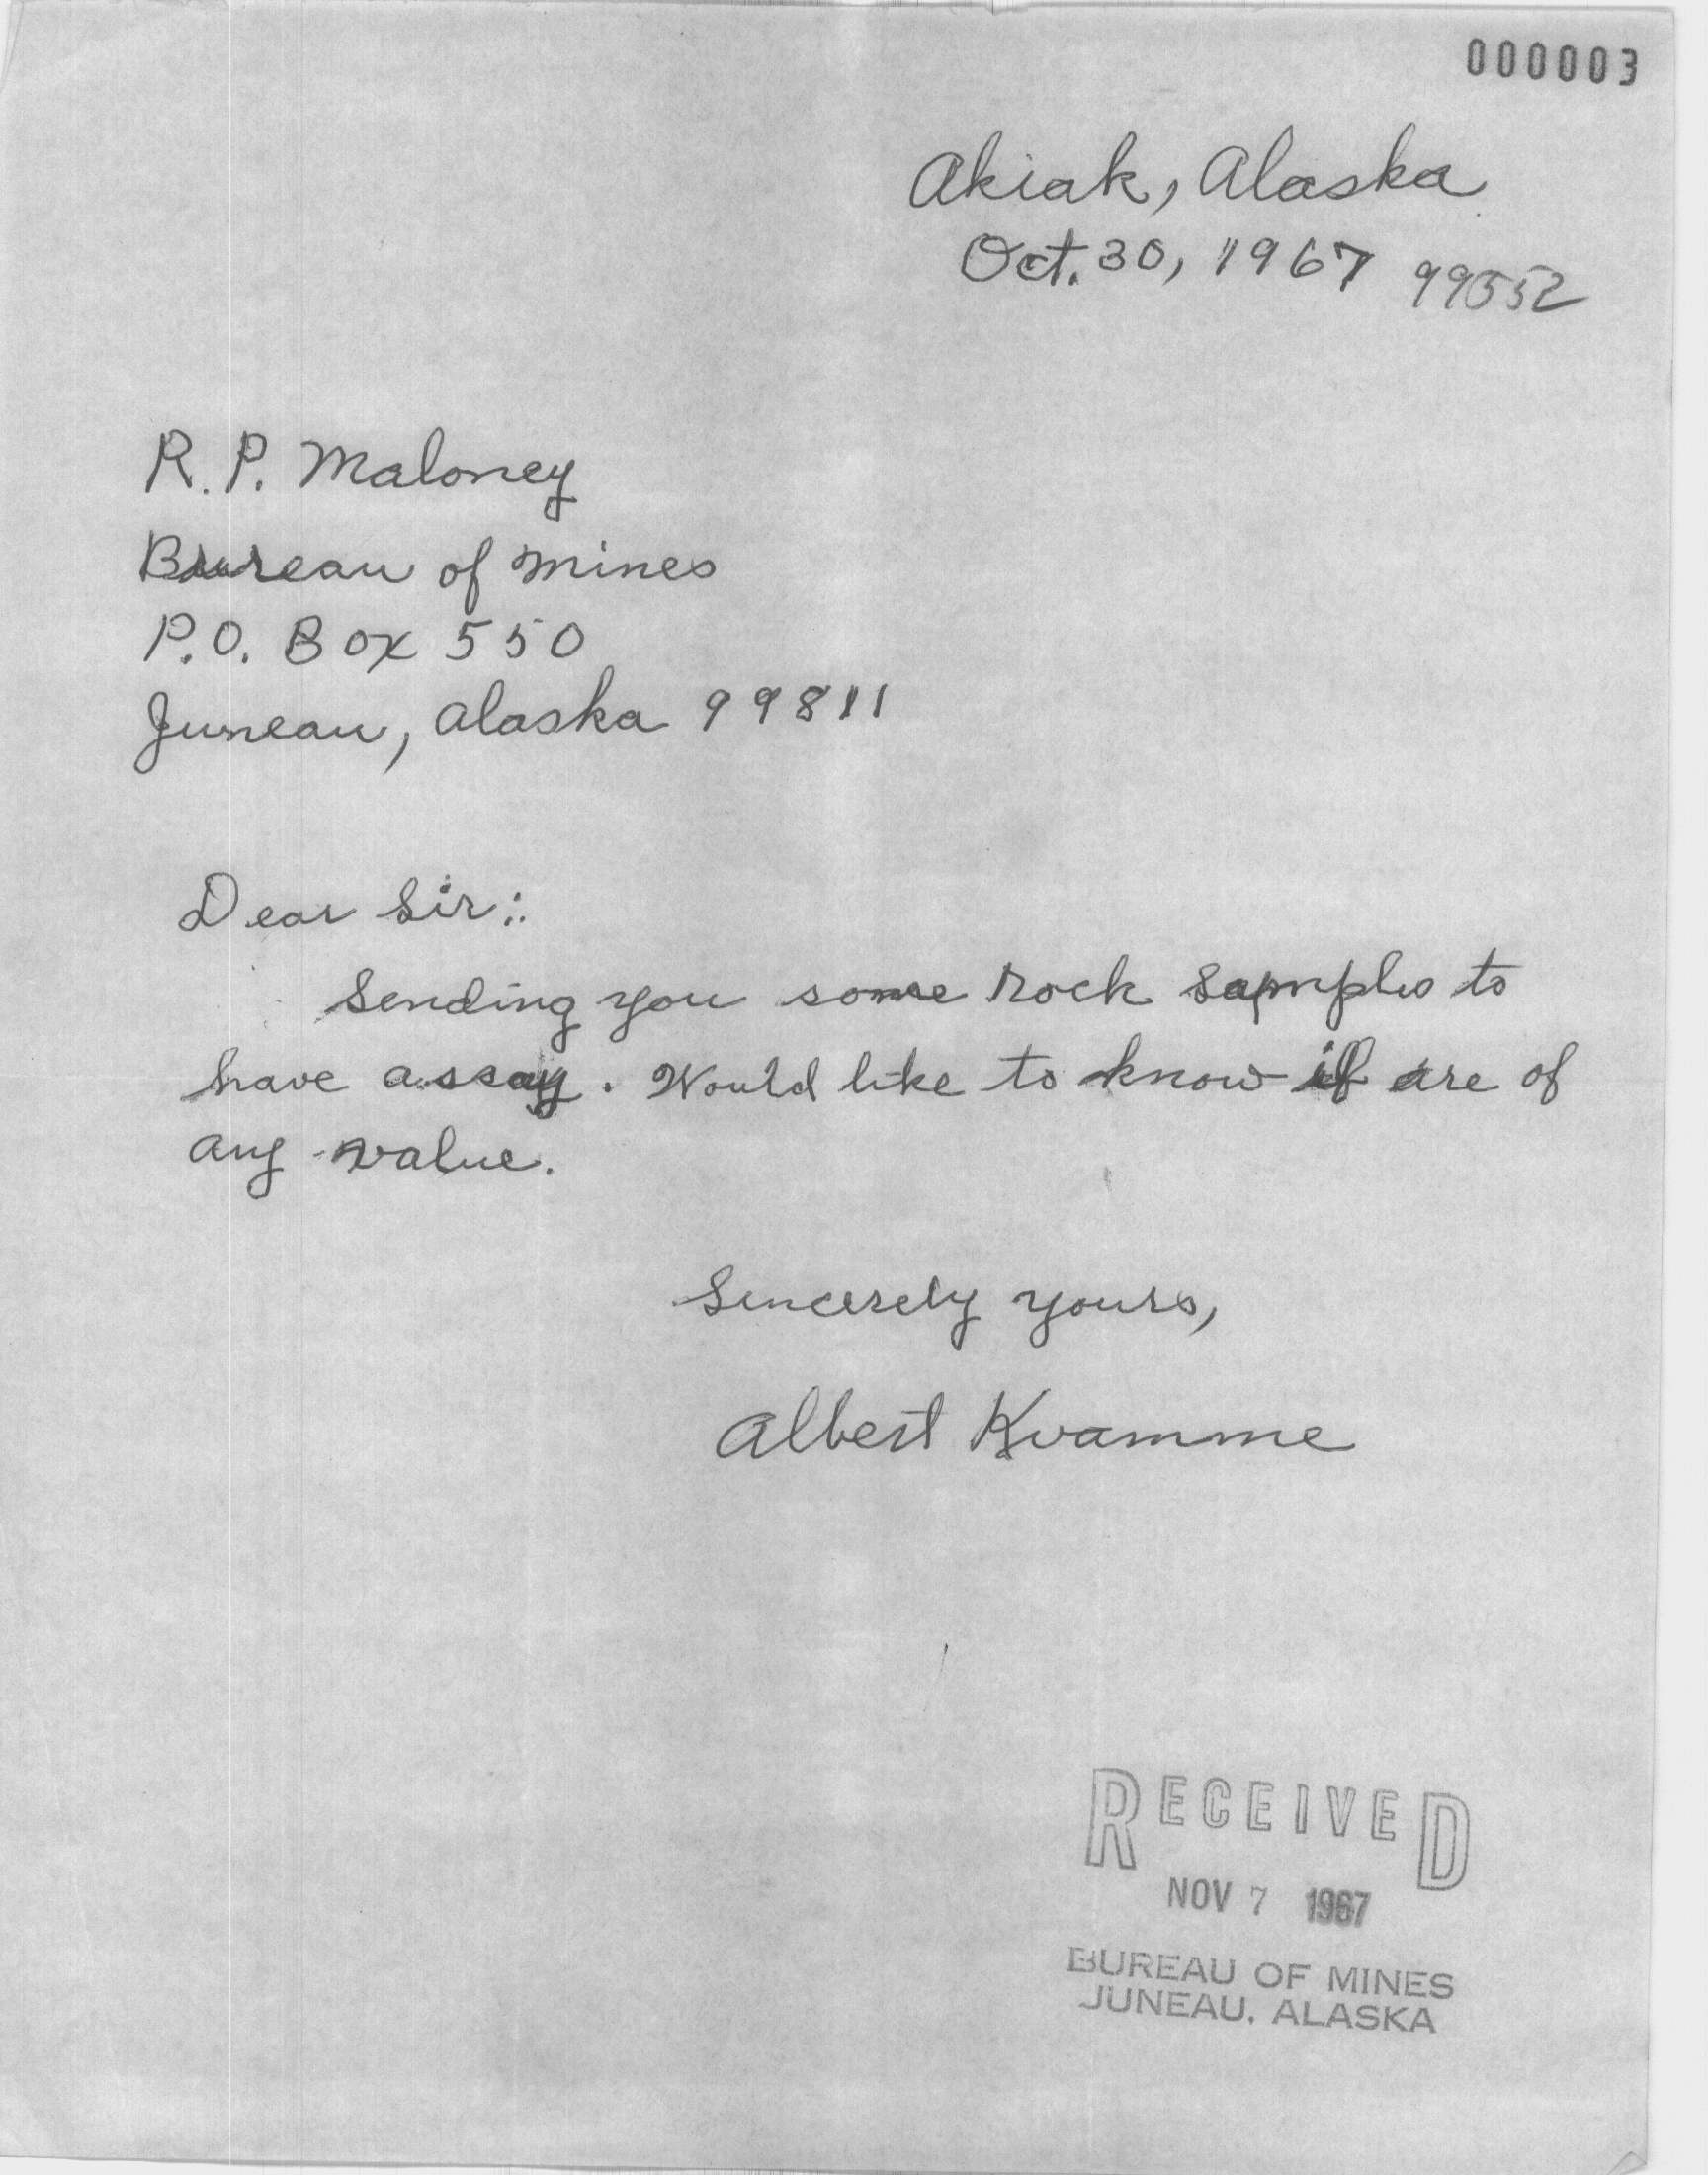 000003
Akiak, Alaska
Oct. 30, 1967 99552
R. P. Maloney
Bureau of Mines
P.O. Box 550
Juneau, Alaska 99811
Dear Sir:
Sending you some rock samples to
have assay. Would like to know if are of
any value.
Sincerely yours,
Albert Kvamme
RECEIVED
NOV 7 1967
BUREAU OF MINES
JUNEAU, ALASKA